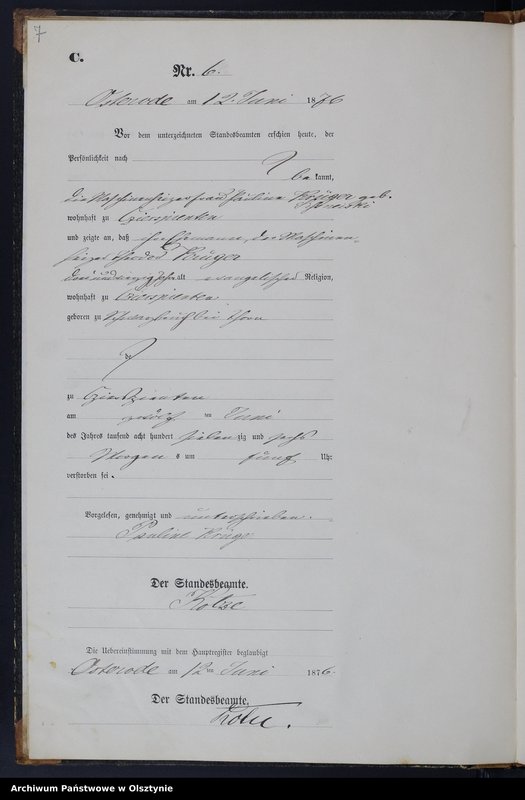 7
C.
Nr. 6.
Osterode am 12. Juni 1876
Vor dem unterzeichneten Standesbeamten erschien heute, der
Persönlichkeit nach
bekannt,
die Maschinenheizerfrau Pauline Krüger geb.
wohnhaft zu
und zeigte an, daß ihr Ehemann, der Maschinen-
heizer Theodor Krüger
alt evangelischer Religion,
wohnhaft zu
geboren zu bei Thorn
zu
am zwölften Juni
des Jahres tausend acht hundert siebenzig und sechs
Morgens um fünf Uhr
verstorben sei.
Vorgelesen, genehmigt und unterschrieben.
Pauline Krüger
Der Standesbeamte.
Kotze
Die Uebereinstimmung mit dem Hauptregister beglaubigt
Osterode am 12ten Juni 1876.
Der Standesbeamte.
Kotze.
Archiwum Państwowe w Olsztynie